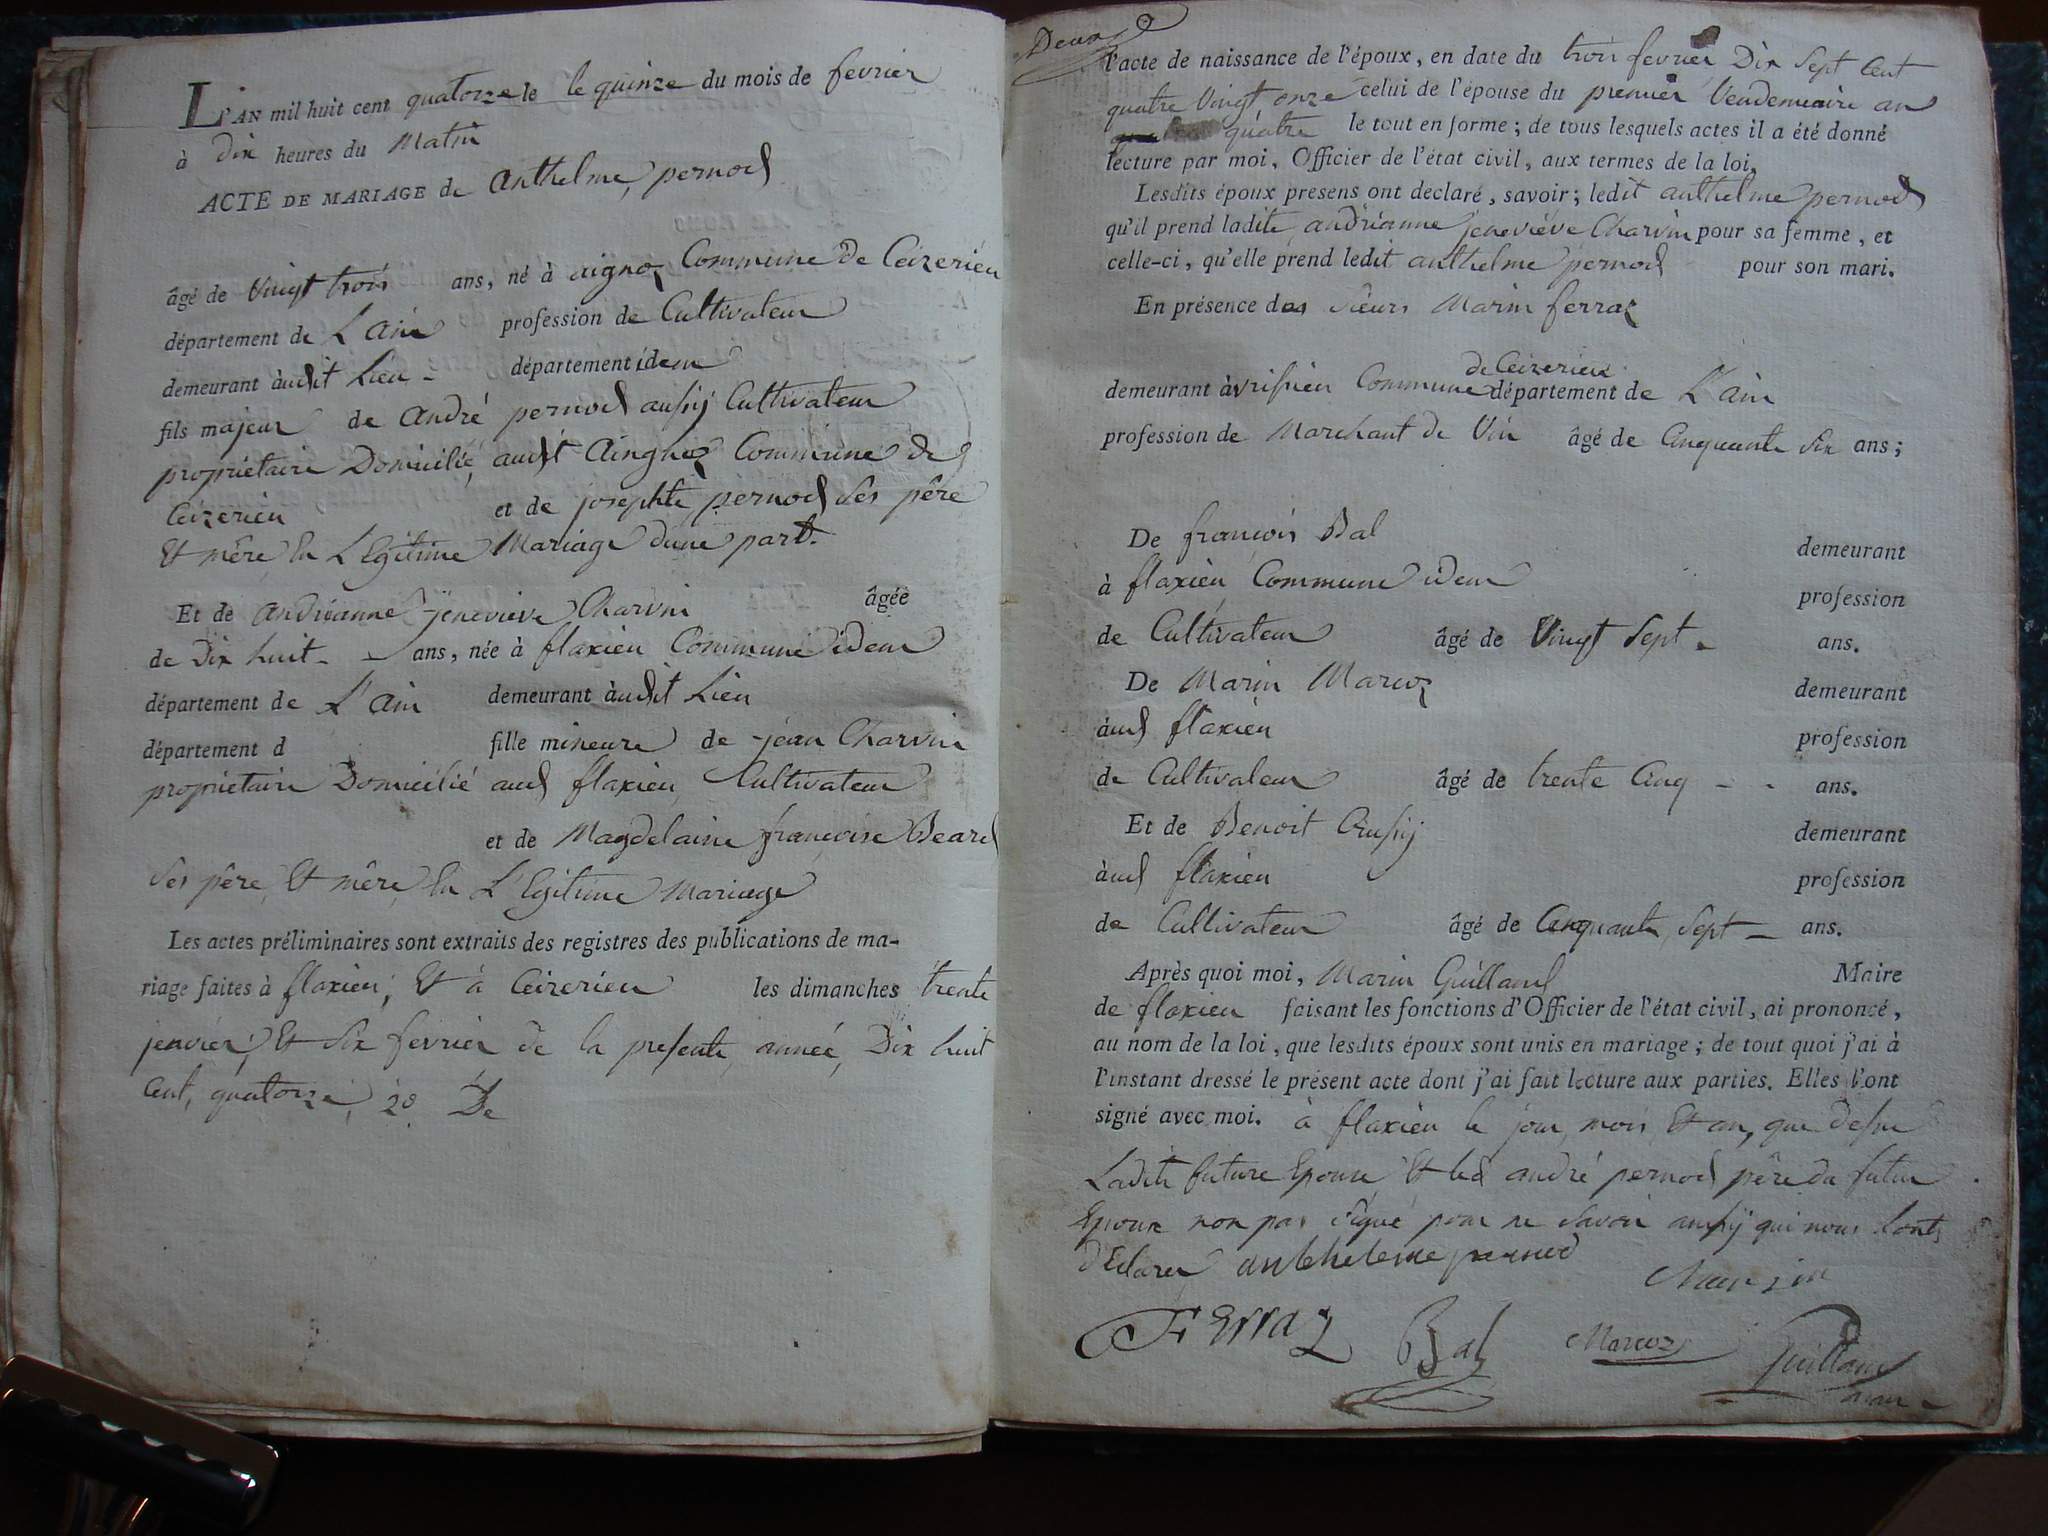 L'AN mil huit cent quatorze le le quinze du mois de fevrier
à dix heures du Matin
ACTE DE MARIAGE de Anthelme, pernod
âgé de Vingt trois ans, né à aignoz Commune de Ceizerieu
département de L'ain profession de Cultivateur
demeurant àudit Lieu - département idem
fils majeur de André pernod aussy Cultivateur
propriétaire Domicilié audit Aingnoz Commune de
Ceizerieu et de josephte pernod Ses père
Et mère En L'Egitime Mariage d'une part.
Et de andréanne jeneviève Charvin âgée
de Dix huit - - ans, née à flaxieu Commune idem
département de L'ain demeurant àudit Lieu
département d fille mineure de jean Charvin
propriétaire Domicilié aud flaxieu, Cultivateur
et de Magdelaine françoise Beard
Ses père, Et mère, En L'Egitime Mariage
Les actes préliminaires sont extraits des registres des publications de ma-
riage faites à flaxieu, Et à Ceizerieu les dimanches trente
jenvier, Et Six fevrier de la presente, année, Dix huit
Cent, quatorze, 2o De
l'acte de naissance de l'époux, en date du trois fevrier Dix Sept Cent
quatre Vingt onze celui de l'épouse du premier Vendemiaire an
quatre le tout en forme; de tous lesquels actes il a été donné
lecture par moi, Officier de l'état civil, aux termes de la loi.
Lesdits époux présens ont déclaré, savoir; ledit anthelme pernod
qu'il prend ladite andréanne jeneviéve Charvin pour sa femme, et
celle-ci, qu'elle prend ledit anthelme pernod pour son mari.
En présence des Sieurs Marin ferraz
de Ceizerieu
demeurant à vrissieu Commune département de L'ain
profession de Marchant de Vin âgé de Cinquante Six ans;
De françois Bal demeurant
à flaxieu Commune idem profession
de Cultivateur âgé de Vingt Sept - ans.
De Marin Marcoz demeurant
àud flaxieu profession
de Cultivateur âgé de trente Cinq - - ans.
Et de Benoit demeurant
àud flaxieu profession
de Cultivateur âgé de Cinquante, Sept - ans.
Après quoi moi, Marin Guilland Maire
de flaxieu faisant les fonctions d'Officier de l'état civil, ai prononcé,
au nom de la loi, que lesdits époux sont unis en mariage; de tout quoi j'ai à
l'instant dressé le présent acte dont j'ai fait lecture aux parties. Elles l'ont
signé avec moi. à flaxieu le jour, mois, Et an, que dessus
Ladite future Epouse Et led andré pernod père du futur
Epoux non pas Signé pour ne Savoir aussy qui nous Lont
dEclarer anthelme pernod
FERRAZ Bal Marcoz Guilland